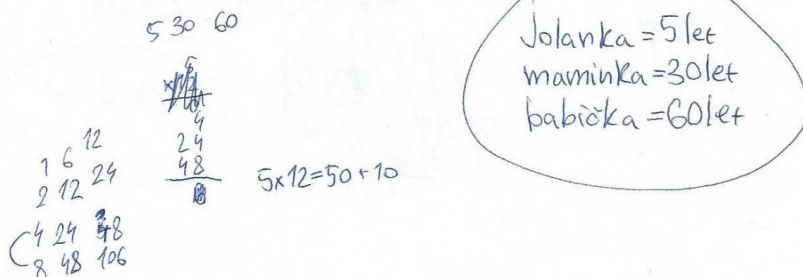 5 30 60
4
24
48
5x12=50+10
1 6 12
2 12 24
4 24 48
8 48 106
Jolanka=5let
maminka=30let
babička=60let